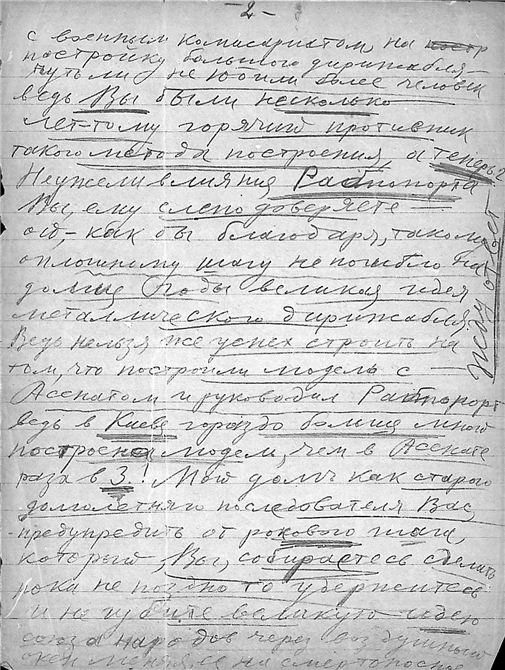 -2-
с военным комисариатом, на
постройку большого дирижабля
чуть ли не на 100 или более человек
ведь Вы были несколько
лет-тому горячий противник
такого метода построения, а теперь?
Неужели влияния Рапопорта
Вы, ему слепо доверяете —
ой,- как бы благодаря, такому
оплошному шагу не погибло на
долшие годы великая идея
металлического дирижабля
Ведь нельзя же успех строить на
том, что построили модель с —
Асенатом и руководил Рапопорт
ведь в Киеве гораздо больше мной
построена модель, чем в Асенате
раза в 3! Мой долг как старого
долголетняго последователя Вас,
предупредить от рокового шага,
который, Вы, собираетесь сделать
пока не поздно то удержитесь
и не губите великую идею
союза народов через воздушный
океан меняя ее на
Жду ответ